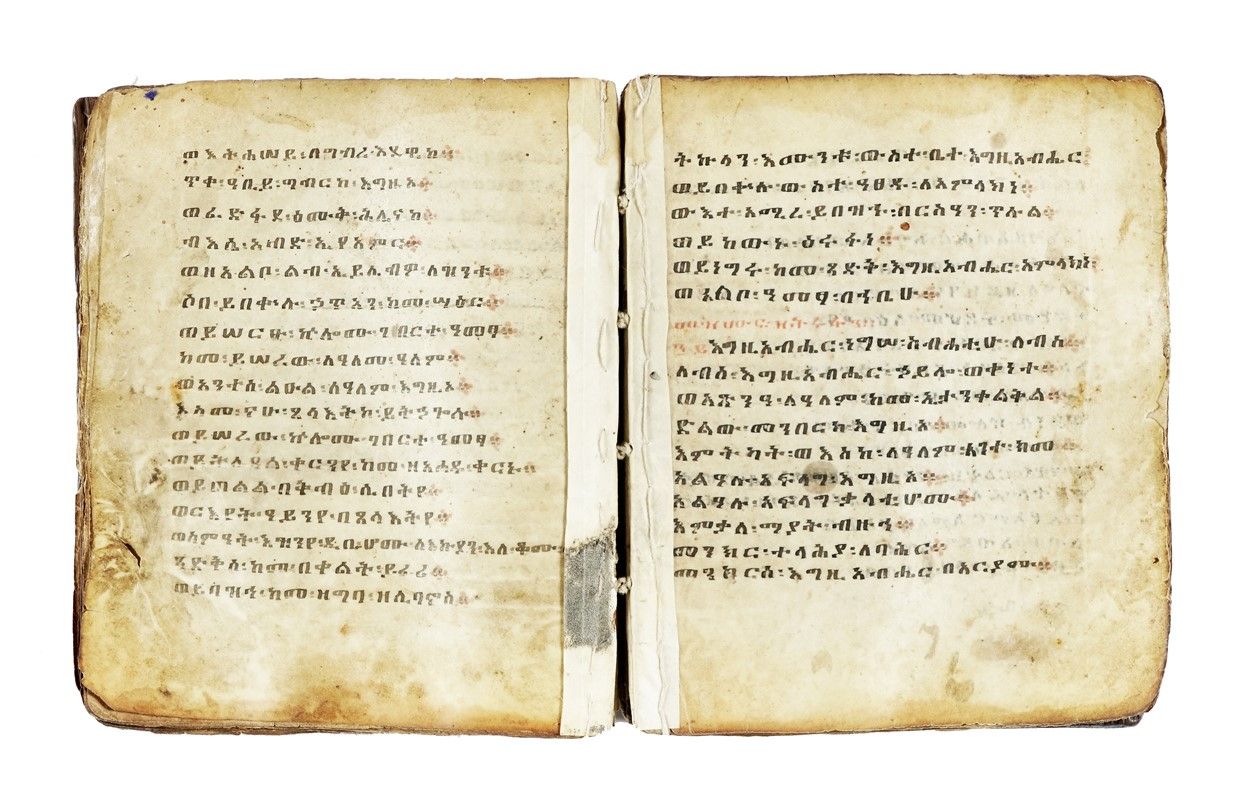 ወእትሐሠይ፡በግብረ፡እደዊከ።
ጥቀ፡ዓቢይ፡ግብርከ፡እግዚኦ።
ወፈድፋደ፡ዕሙቅ፡ሕሊናከ።
ብእሲ፡አብድ፡ኢየአምር።
ወዘአልቦ፡ልብ፡ኢይሌብዎ፡ለዝንቱ።
ሶበ፡ይበቍሉ፡ኃጥአን፡ከመ፡ሣዕር።
ወይሠርሁ፡ኵሎሙ፡ገበርተ፡ዓመፃ።
ከመ፡ይሠረው፡ለዓለመ፡ዓለም።
ወአንተሰ፡ልዑል፡ለዓለም፡እግዚኦ።
እስመ፡ናሁ፡ጸላእትከ፡ይትኃጐሉ።
ወይሠረው፡ኵሎሙ፡ገበርተ፡ዓመፃ።
ወይትሌዓል፡ቀርንየ፡ከመ፡ዘአሐዱ፡ቀርኑ።
ወይጠልል፡በቅብዕ፡ሲበትየ።
ወርእየት፡ዓይንየ፡በጸላእትየ።
ወሰምዓት፡እዝንየ፡ዲቤሆሙ፡ለእኩያን፡እለ፡ቆሙ።
ጻድቅሰ፡ከመ፡በቀልት፡ይፈሪ።
ወይበዝኅ፡ከመ፡ዘግባ፡ዘሊባኖስ።
ትኩላን፡እሙንቱ፡ውስተ፡ቤተ፡እግዚአብሔር
ወይበቍሉ፡ውስተ፡ዓፀዱ፡ለአምላክነ።
ውእተ፡አሚረ፡ይበዝኁ፡በርስዓን፡ጥሉል።
ወይከውኑ፡ዕሩፋነ።
ወይነግሩ፡ከመ፡ጻድቅ፡እግዚአብሔር፡አምላክነ
ወአልቦ፡ዓመፃ፡በኀቤሁ።
እግዚአብሔር፡ነግሠ፡ስብሐቲሁ፡ለብሰ።
ለብሰ፡እግዚአብሔር፡ኃይሎ፡ወቀነተ።
ወአጽንዓ፡ለዓለም፡ከመ፡ኢታንቀልቅል።
ድልው፡መንበርከ፡እግዚኦ።
እምትካት፡ወእስከ፡ለዓለም፡አንተ፡ክመ።
አልዓሉ፡አፍላግ፡እግዚኦ።
አልዓሉ፡አፍላግ፡ቃላቲሆሙ።
እምቃለ፡ማያት፡ብዙኅ።
መንክር፡ተላሕያ፡ለባሕር።
መንክርሰ፡እግዚአብሔር፡በአርያሙ።